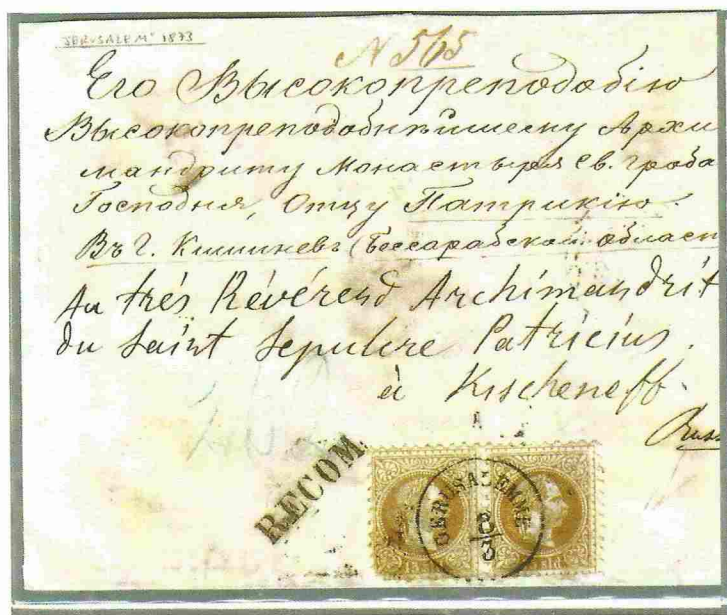 "JERUSALEM" 1873
N 565
Его Высокопреподобію
Высокопреподобнѣйшему Архи
мандриту Монастыря Св. гроба
Господня, Отцу Патрикію.
Въ Г. Кишиневъ (Бессарабской област
Au très Révérend Archimandrit
du Saint Sepulcre Patricius.
à Kischeneff.
Russ
RECOM
GERUSALEMME
8/3
15 sld 15 sld